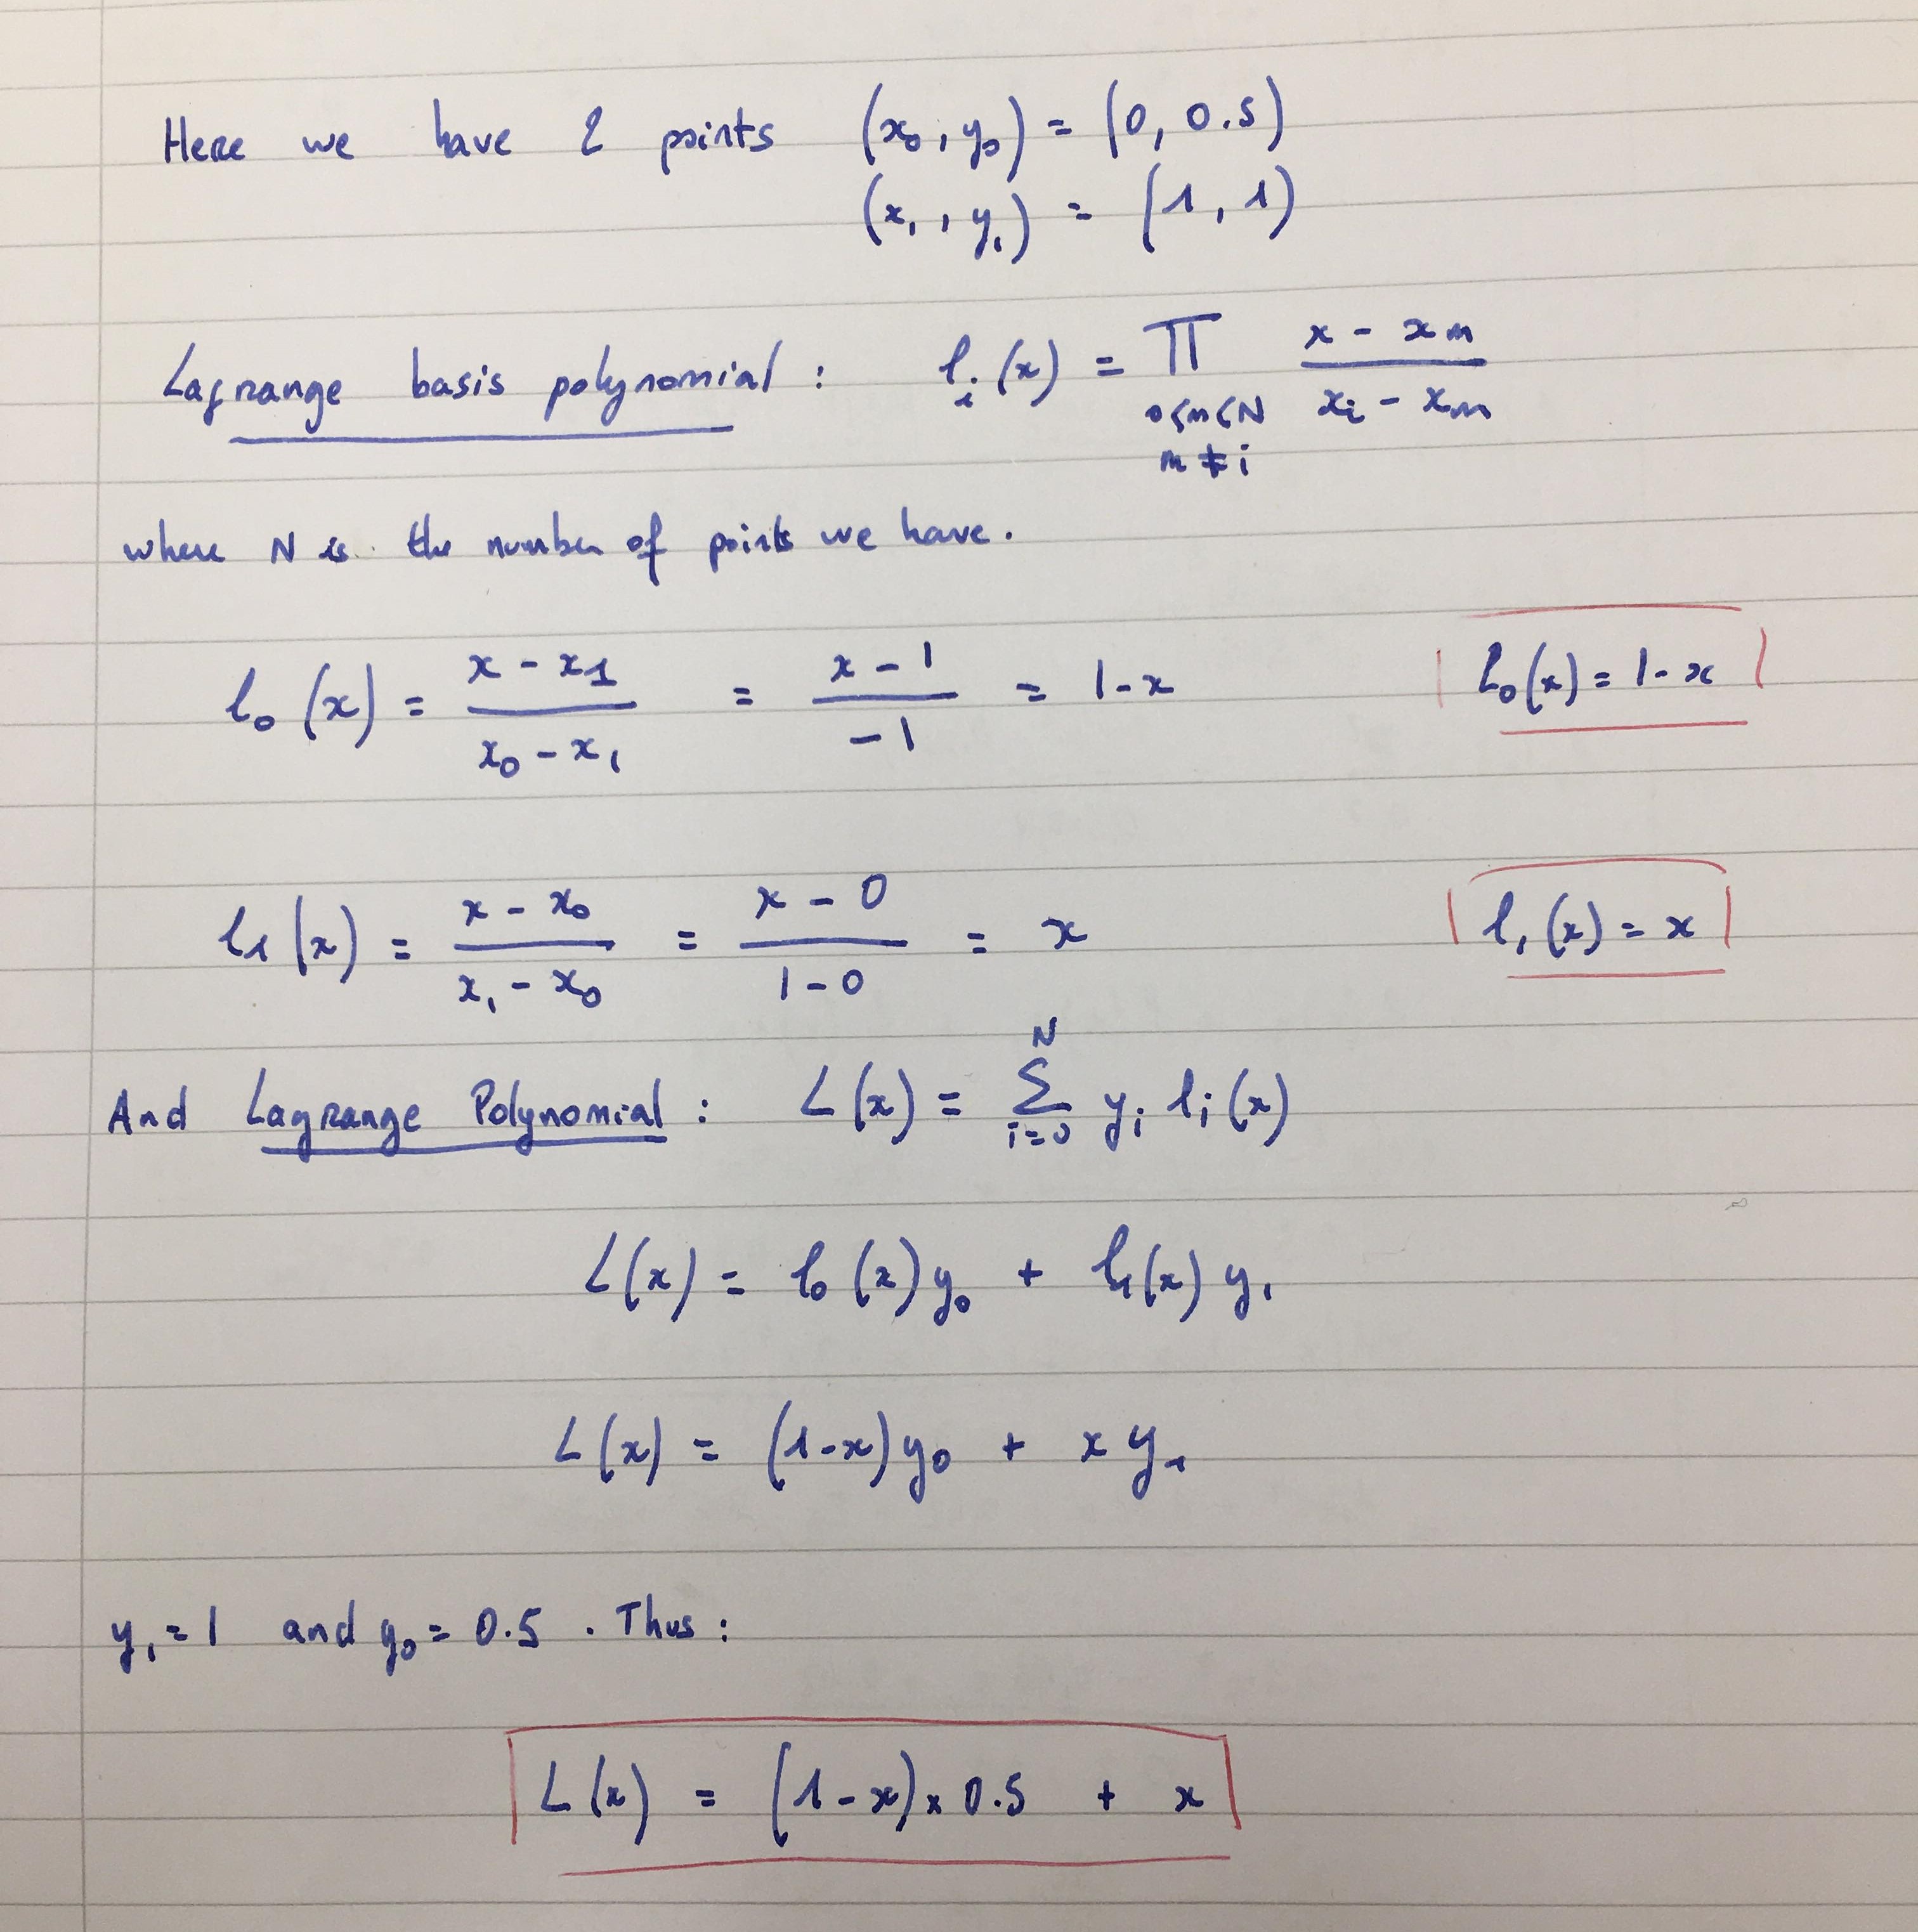 Here we have 2 points (x₀, y₀) = (0, 0.5)
(x₁, y₁) = (1, 1)
Lagrange basis polynomial : lᵢ(x) = ∏_{0≤m≤N, m≠i} (x - xₘ)/(xᵢ - xₘ)
where N is the number of points we have.
l₀(x) = (x - x₁)/(x₀ - x₁) = (x - 1)/(-1) = 1 - x    l₀(x) = 1 - x
l₁(x) = (x - x₀)/(x₁ - x₀) = (x - 0)/(1 - 0) = x    l₁(x) = x
And Lagrange Polynomial : L(x) = ∑_{i=0}^{N} yᵢ lᵢ(x)
L(x) = l₀(x) y₀ + l₁(x) y₁
L(x) = (1-x) y₀ + x y₁
y₁ = 1 and y₀ = 0.5 . Thus :
L(x) = (1-x) × 0.5 + x